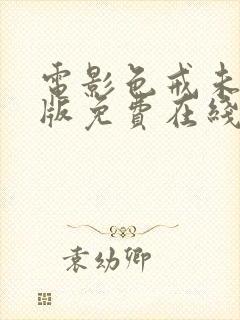 電影色戒未
版免費在綫
袁幼卿